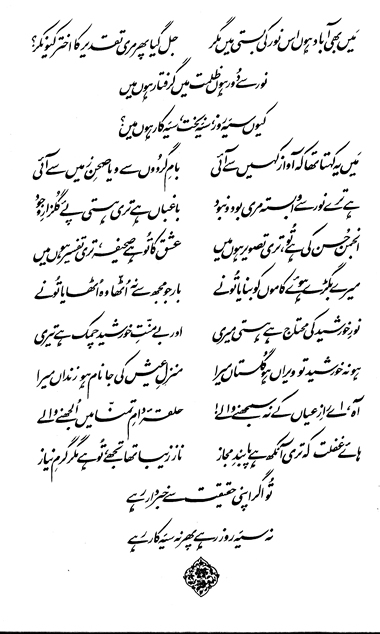 میں بھی آباد ہوں اس نور کی بستی میں مگر جل گیا پھر مری تقدیر کا اختر کیونکر؟
نور سے دور ہوں ظلمت میں گرفتار ہوں میں
کیوں سیہ روز، سیہ بخت، سیہ کار ہوں میں؟
میں یہ کہتا تھا کہ آواز کہیں سے آئی بامِ گردوں سے و یا صحنِ زمیں سے آئی
ہے ترے نور سے وابستہ مری بود و نبود باغباں ہے تری ہستی پئے گلزارِ وجود
انجمن حسن کی ہے تو، تری تصویر ہوں میں عشق کا تو ہے صحیفہ، تری تفسیر ہوں میں
میرے بگڑے ہوئے کاموں کو بنایا تو نے بار جو مجھ سے نہ اٹھا وہ اٹھایا تو نے
نورِ خورشید کی محتاج ہے ہستی میری اور بے منتِ خورشید چمک ہے تیری
ہو نہ خورشید تو ویراں ہو گلستاں میرا منزلِ عیش کی جا نام ہو زنداں میرا
آہ، اے رازِ عیاں کے نہ سمجھنے والے! حلقۂ دامِ تمنا میں الجھنے والے
ہائے غفلت کہ تری آنکھ ہے پابندِ مجاز ناز زیبا تھا تجھے، تو ہے مگر گرمِ نیاز
تو اگر اپنی حقیقت سے خبردار رہے
نہ سیہ روز رہے پھر نہ سیہ کار رہے